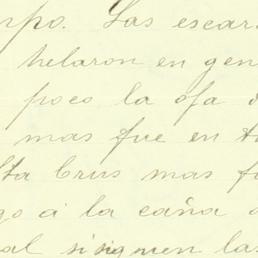 rpo. Las escar
helaron en gen
poco la ofa d
mas fue en t
lta Crus mas f
go á la caña d
al siguen las